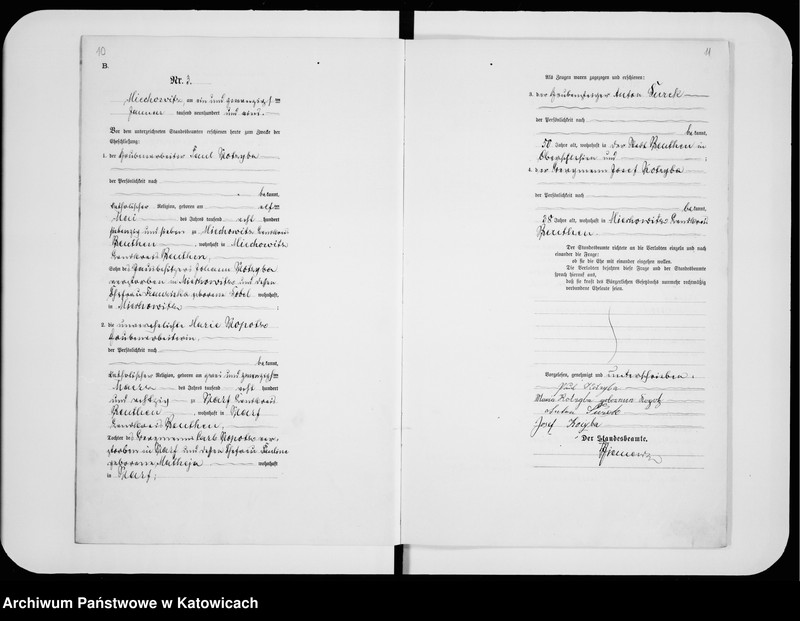 10
B.
Nr. 3.
Miechowitz, am ein und zwanzigsten
Januar tausend neunhundert und eins.
Vor dem unterzeichneten Standesbeamten erschienen heute zum Zwecke der
Eheschließung:
1. der Grubenarbeiter Paul Kotzyba
der Persönlichkeit nach
bekannt,
katholischer Religion, geboren am elf
Mai des Jahres tausend acht hundert
siebenzig und sieben zu Miechowitz Landkreis
Beuthen, wohnhaft in Miechowitz
Landkreis Beuthen,
Sohn des Johann Kotzyba
verstorben in Miechowitz und dessen
Ehefrau geborene wohnhaft
in Miechowitz
2. die unverehelichte Marie
Grubenarbeiterin,
der Persönlichkeit nach
bekannt,
katholischer Religion, geboren am zwei und zwanzigsten
des Jahres tausend acht hundert
und achtzig zu Karf Landkreis
Beuthen, wohnhaft in Karf
Landkreis Beuthen,
Tochter des Bergmanns Carl ver-
storben in Karf und dessen Ehefrau Pauline
geborene Matheja wohnhaft
in Karf;
11
Als Zeugen waren zugezogen und erschienen:
3. der Anton Turek
der Persönlichkeit nach
bekannt,
50 Jahre alt, wohnhaft in der Stadt Beuthen in
Oberschlesien und
4. der Bergmann Josef Kotzyba
der Persönlichkeit nach
bekannt,
38 Jahre alt, wohnhaft in Miechowitz Landkreis
Beuthen.
Der Standesbeamte richtete an die Verlobten einzeln und nach
einander die Frage:
ob sie die Ehe mit einander eingehen wollen.
Die Verlobten bejahten diese Frage und der Standesbeamte
sprach hierauf aus,
daß sie kraft des Bürgerlichen Gesetzbuchs nunmehr rechtmäßig
verbundene Eheleute seien.
Vorgelesen, genehmigt und unterschrieben.
Paul Kotzyba
Maria Kotzyba geborene
Anton Turek
Josef
Der Standesbeamte.
Archiwum Państwowe w Katowicach